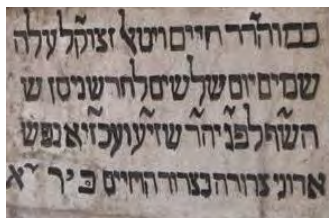 כמוהר״ר חיים ויטאל זצוק״ל עלה
שמים יום שלשים לחדש ניסן ש
לפ״ג יה״ר נפש
אדוני צרורה בצרור החיים